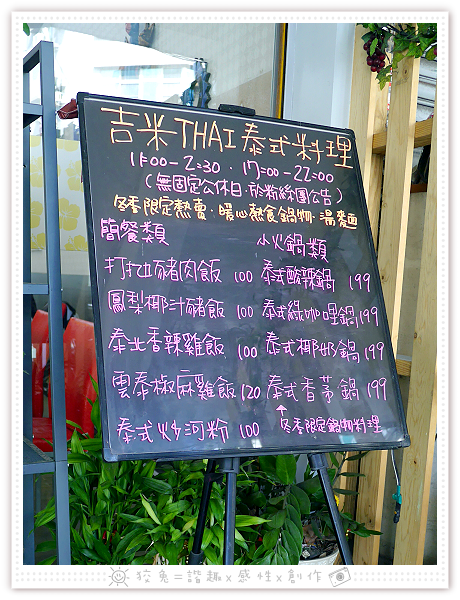 吉米THAI泰式料理
11:00-2:30．17:00-22:00
(無固定公休日．於粉絲團公告)
冬季限定熱賣．暖心熱食鍋物．湯麵
簡餐類
打拋豬肉飯 100
鳳梨椰汁豬飯 100
泰北香辣雞飯 100
雲泰椒麻雞飯 120
泰式炒河粉 100
小火鍋類
泰式酸辣鍋 199
泰式綠咖哩鍋 199
泰式椰奶鍋 199
泰式香茅鍋 199
↑冬季限定鍋物料理
狡兔=諧趣x感性x創作